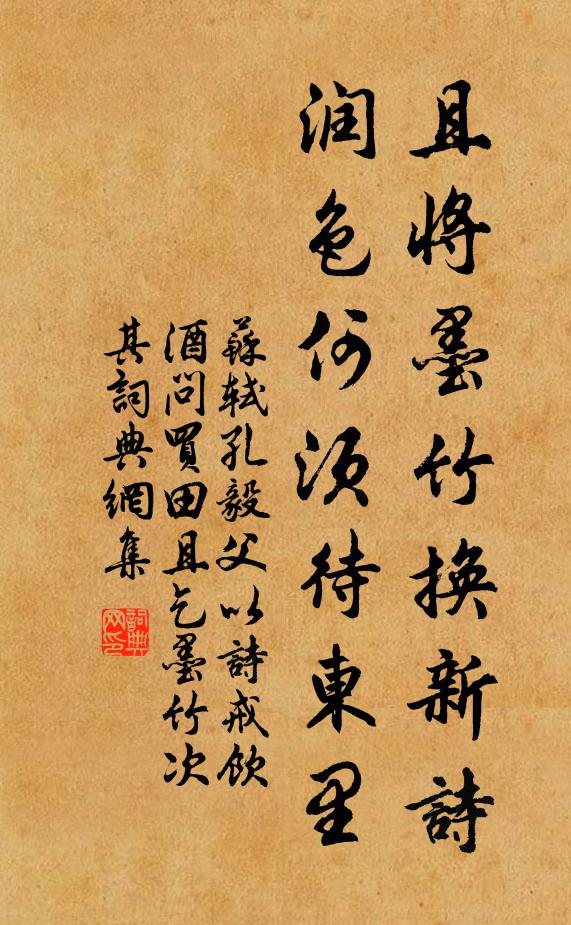 且將墨竹換新詩
润色何须待東里
蘇軾孔毅父以詩戒飲
酒問買田且乞墨竹次
其詞典網集
詞典网印